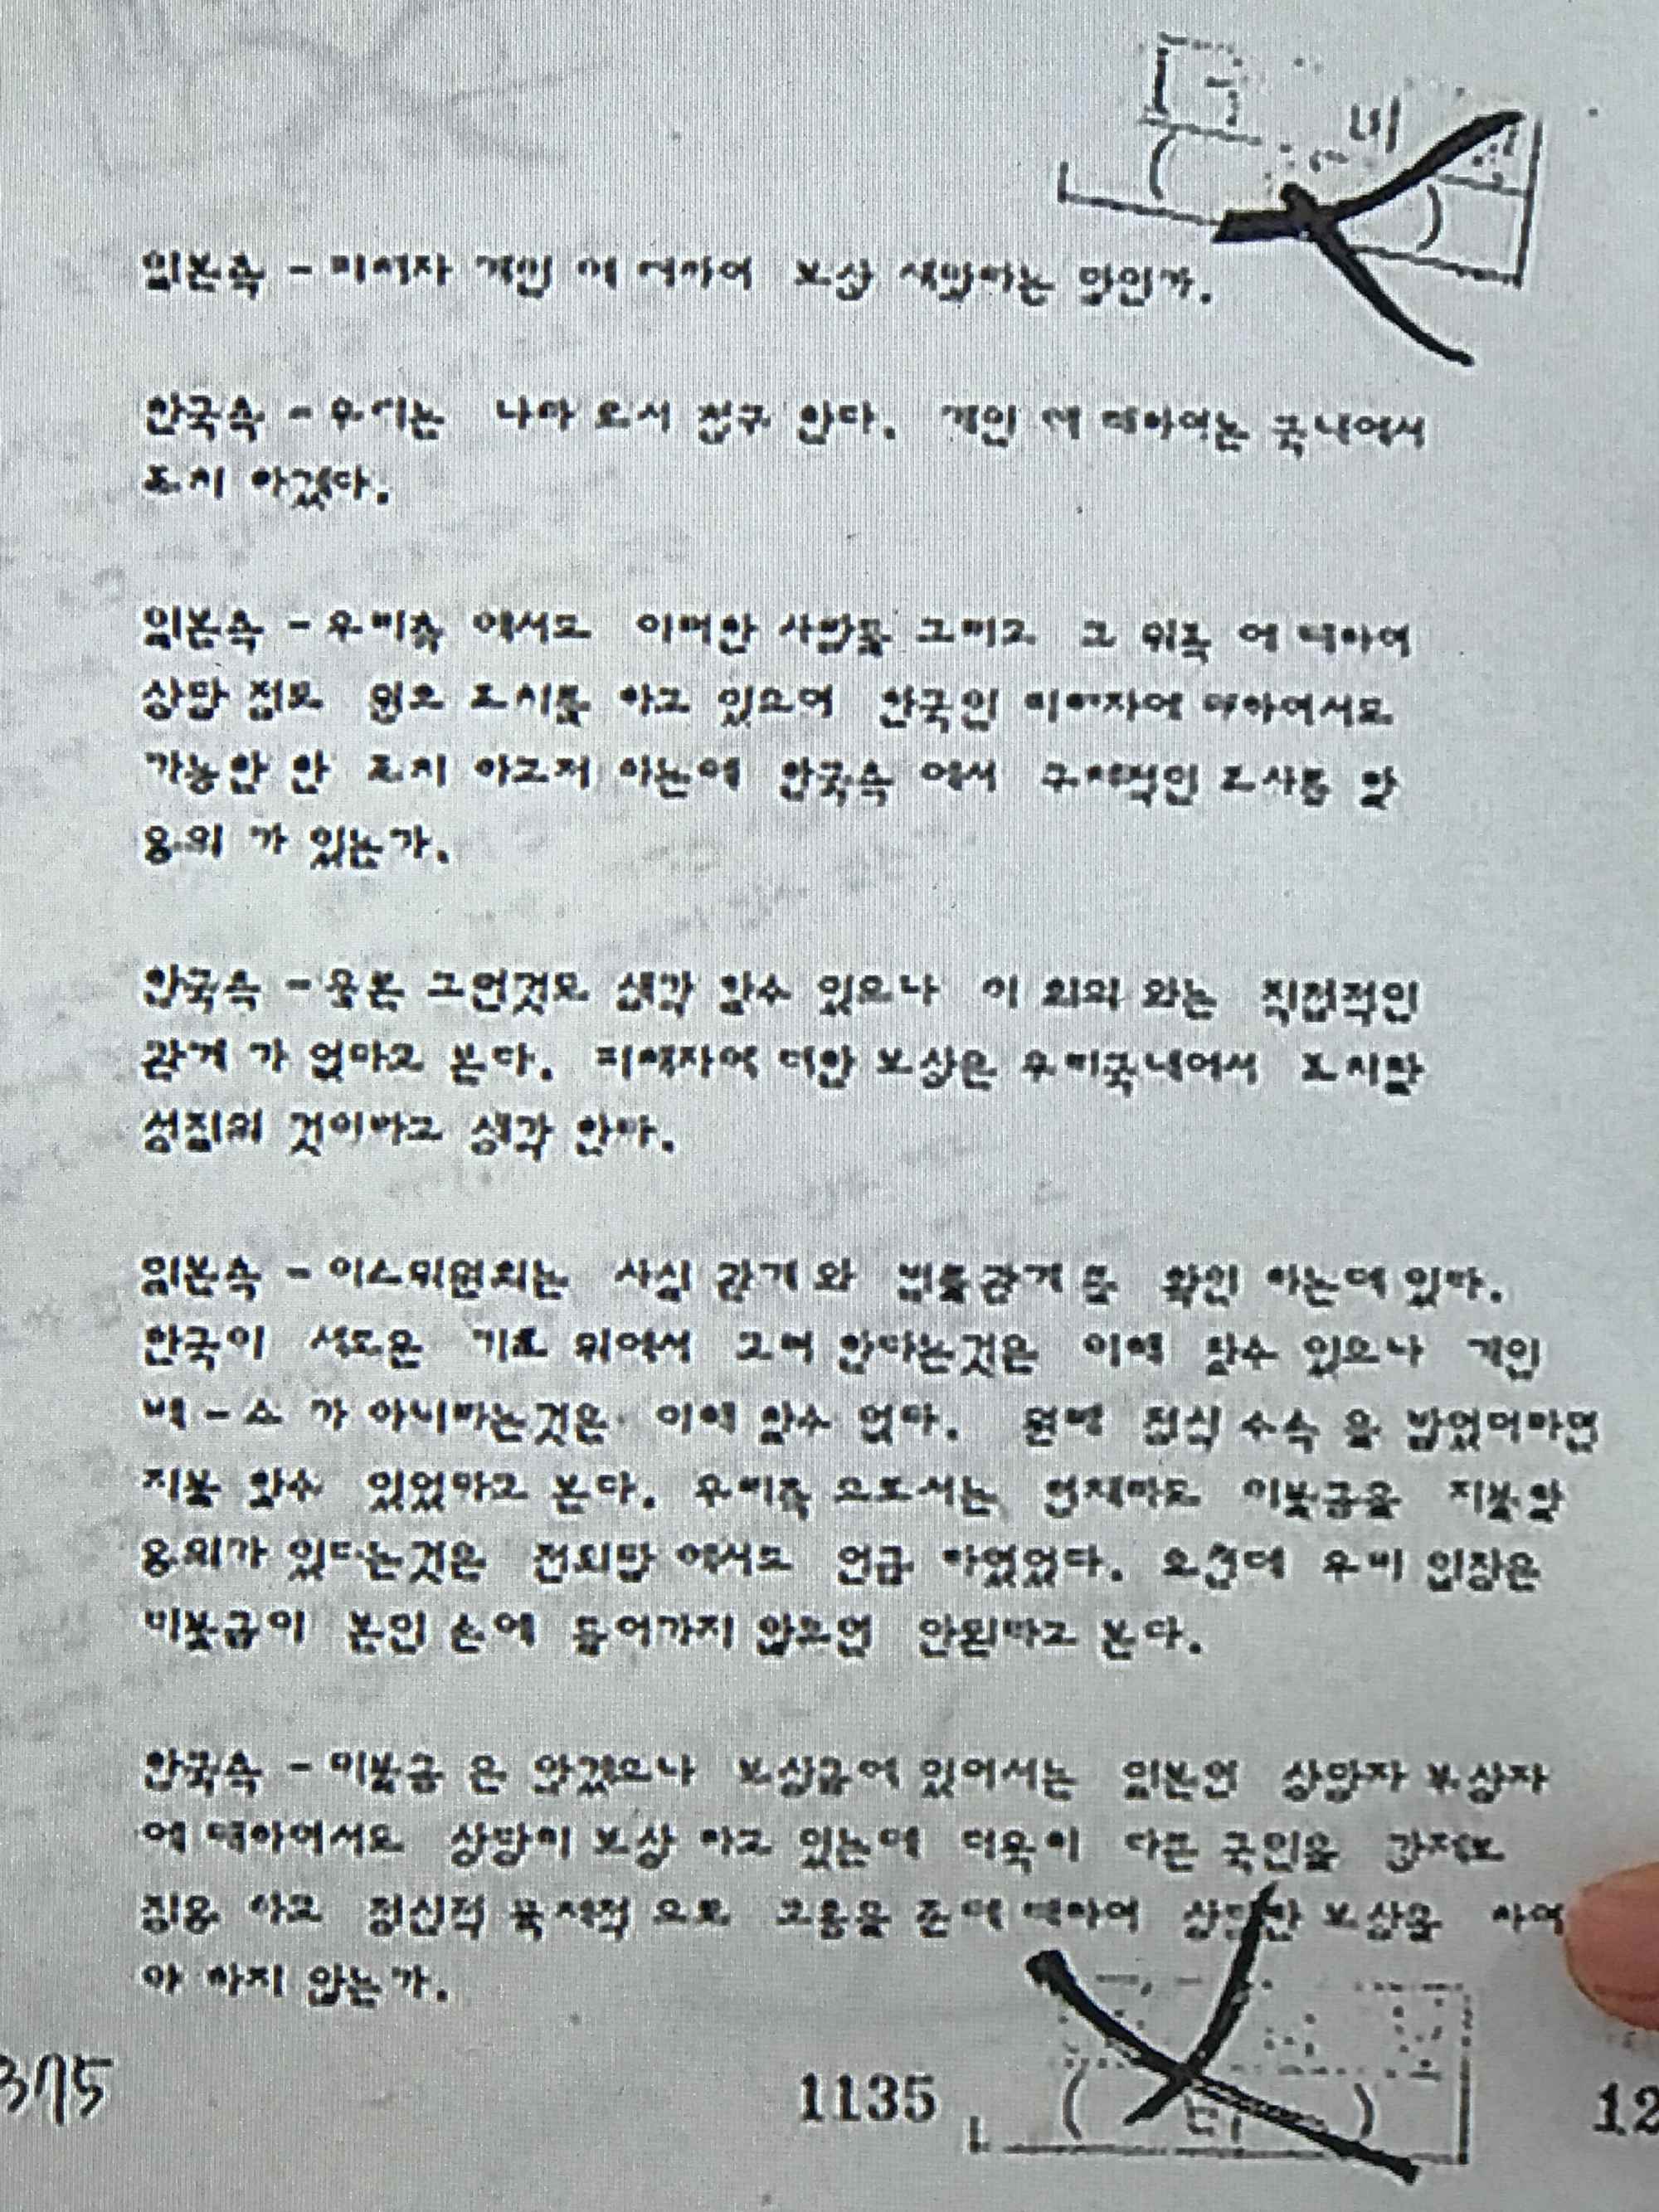 일본측 - 피해자 개인 에 대하여 보상 해달라는 말인가.
한국측 - 우리는 나라 로서 청구 한다. 개인 에 대하여는 국내에서
조치 하겠다.
일본측 - 우리측 에서도 이러한 사람들 그리고 그 유족 에 대하여
상당 정도 원호 조치를 하고 있으며 한국인 피해자에 대하여서도
가능한 한 조치 하고저 하는데 한국측 에서 구체적인 조사를 할
용의 가 있는가.
한국측 - 물론 그런것도 생각 할수 있으나 이 회의 와는 직접적인
관계 가 없다고 본다. 피해자에 대한 보상은 우리국내에서 조치할
성질의 것이라고 생각 한다.
일본측 - 이소위원회는 사실 관계 와 법률관계 를 확인 하는데 있다.
한국이 새로운 기초 위에서 고려 한다는것은 이해 할수 있으나 개인
베-스 가 아니라는것은 이해 할수 없다. 원래 정식 수속 을 밟었더라면
지불 할수 있었다고 본다. 우리측 으로서는 언제라도 미불금을 지불할
용의가 있다는것은 전회담 에서도 언급 하였었다. 요컨데 우리 입장은
미불금이 본인 손에 들어가지 않으면 안된다고 본다.
한국측 - 미불금 은 알겠으나 보상금에 있어서는 일본인 사망자 부상자
에 대하여서도 상당히 보상 하고 있는데 더욱이 다른 국민을 강제로
징용 하고 정신적 육체적 으로 고통을 준데 대하여 상당한 보상을 하여
야 하지 않는가.
375
1135